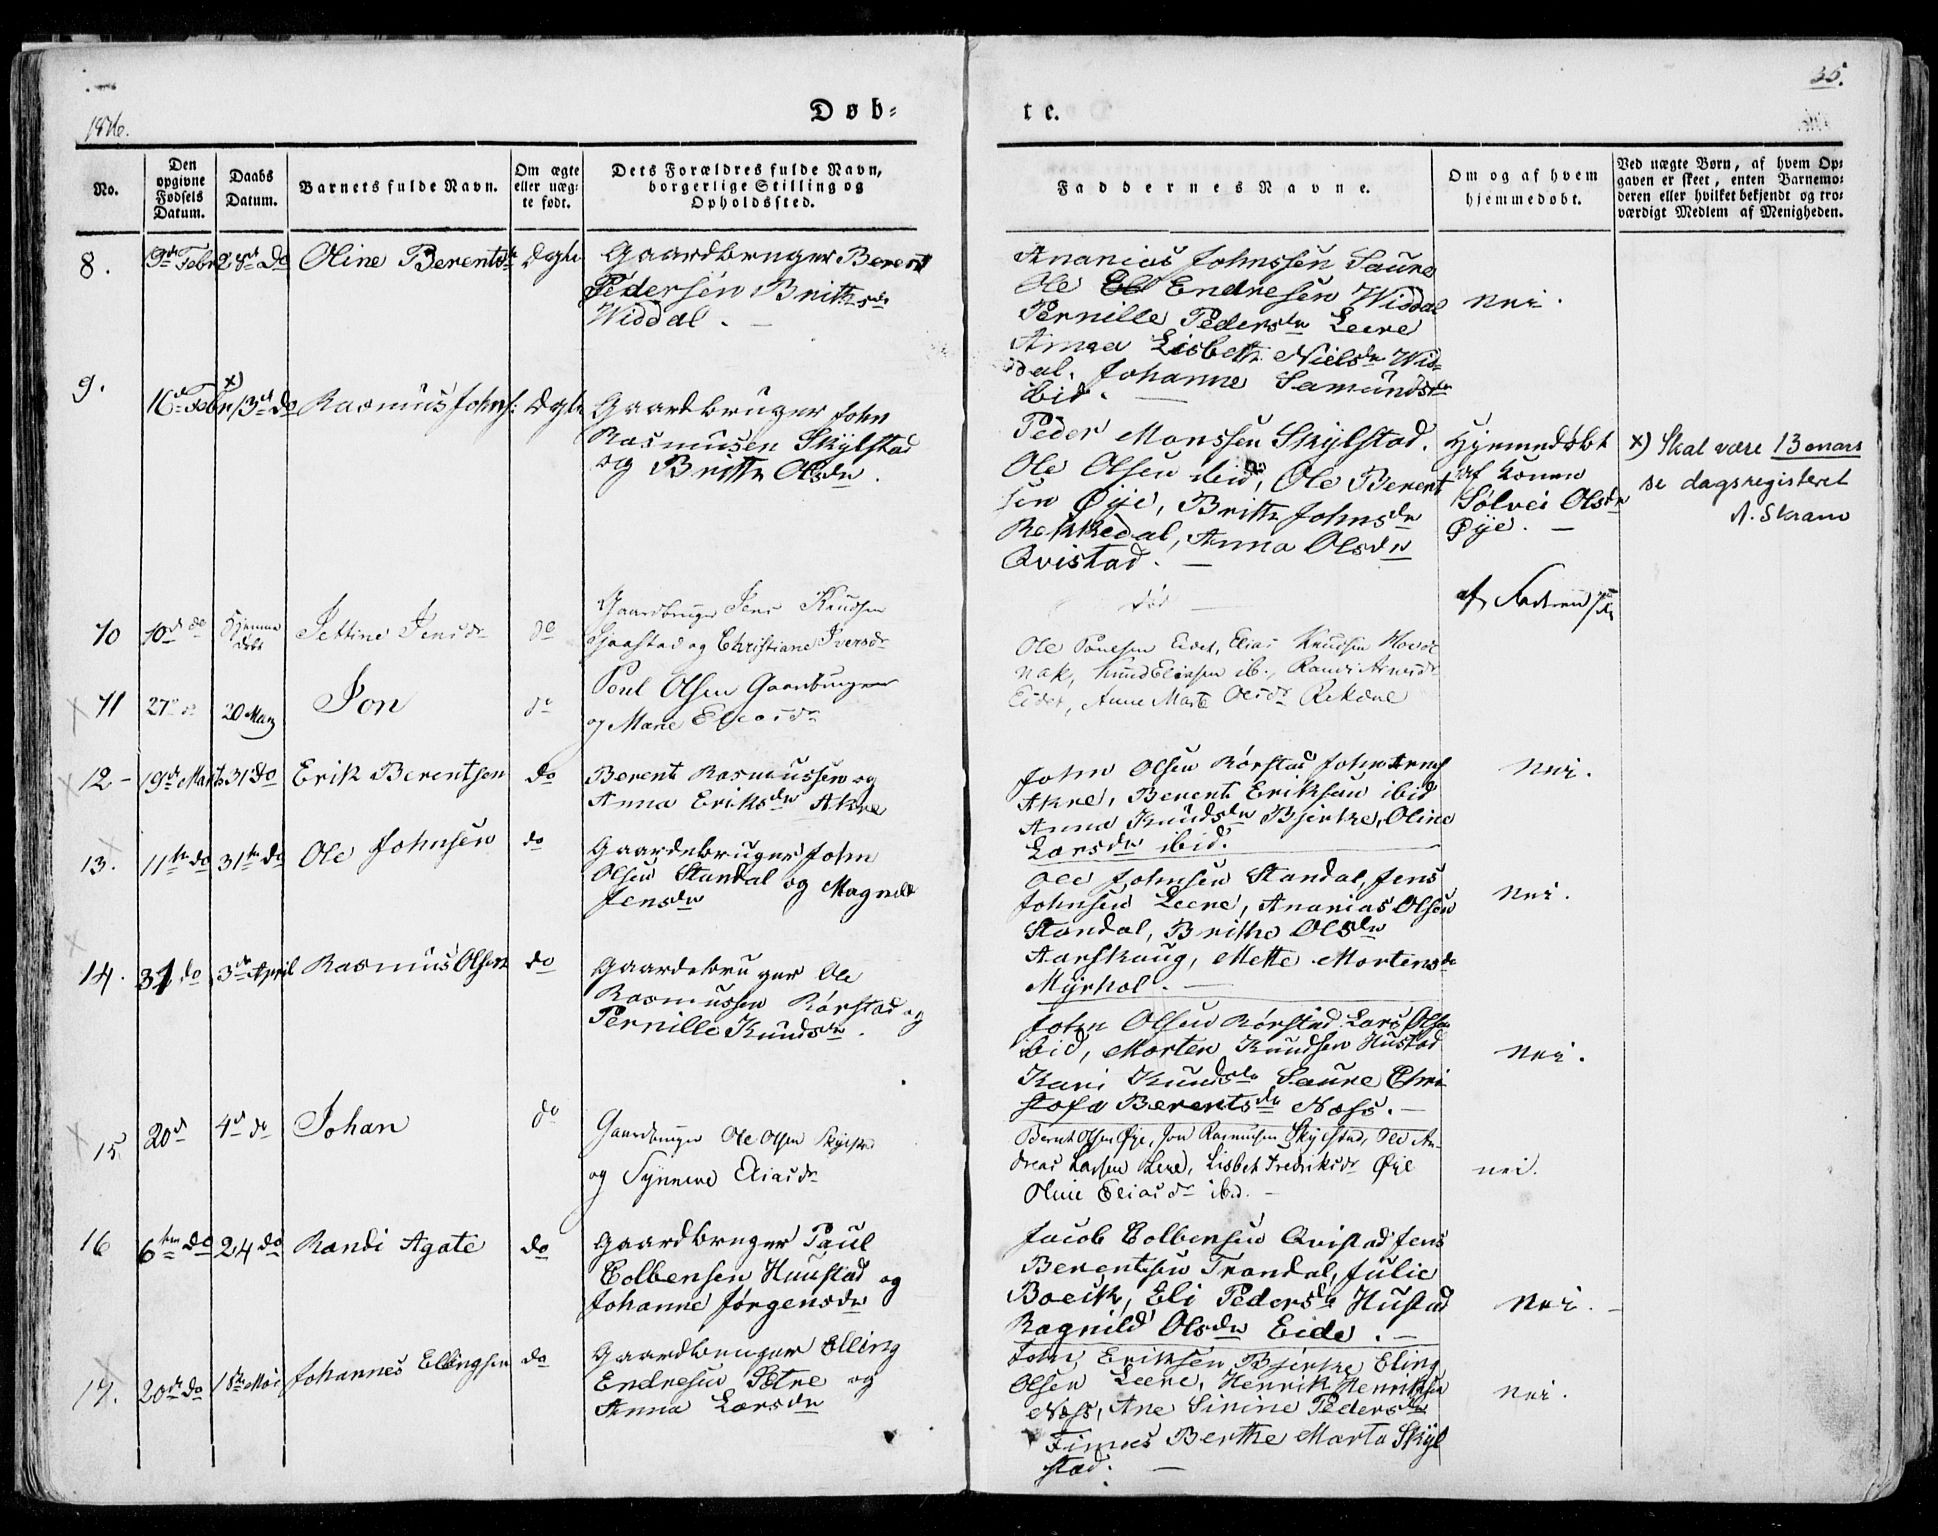 35.
Døb-
te.
No.
Den opgivne Fødsels Datum.
Daabs Datum.
Barnets fulde Navn.
Om ægte eller uægte født.
Dets Forældres fulde Navn, borgerlige Stilling og Opholdssted.
Faddernes Navne.
Om og af hvem hjemmedøbt.
Ved uægte Børn, af hvem Opgaven er skeet, enten Barnemoderen eller hvilket bekjendt og troværdigt Medlem af Menigheden.
8. 9de Febr 28de Do Oline Berentsdr Ægte Gaardbruger Berent
Pedersen Brithe
Widdal.
Ananias Johnssen Saure
Ole Endresen Widdal
Pernille Pedersdr Leere
Anna Lisbeth Nielsdr Wid-
dal. Johanne Samundsdr
ibid.
Nei.
9. 16de Febr x) 13de do Rasmus Johns: Ægte Gaardbruger John
Rasmusen Skylstad
og Brithe Olsdr.
Peder Monssen Skylstad.
Ole Olsen ibid, Ole Berent
sen Øye, Brithe Johnsdr
Rekkedal, Anna Olsdr
Qvistad.
Hjemmedøbt
af Konen
Sølvei Olsdr
Øye.
x) Skal være 13 mars
se dagsregisteret
A. Skram
10 10d do Hjemme døbt Jettine Jensdr do Gaardbruger Jens Knudsen
og Christiane Iversdr
død
af Faderen
11 27d do 20 Marz Jon do Poul Olsen Gaardbruger
og Marie Eliasdr
Ole Poulsen Eidet, Elias Knudsen
Knud Eliasen ib., Randi
Eidet, Anne Marte Olsdr Rekdal
12- 19de Marts 31 Do Erik Berentsen do Berent Rasmussen og
Anna Eriksdr Akre
John Olsen Rørstad John
Akre, Berent Eriksen ibid
Anna Knudsdr Bjerke, Oline
Larsdr ibid.
Nei.
13. 11te do 31te do Ole Johnsen do Gaardebruger John
Olsen Standal og Magnild
Jensdr
Ole Johnsen Standal, Jens
Johnsen Leere, Ananias Olsen
Standal, Brithe Olsdr
Aarskaug, Mette Mortensdr
Myrhol.
Nei.
14. 31 do 3de April Rasmus Olsen do Gaardebruger Ole
Rasmussen Rørstad og
Pernille Knudsdr.
John Olsen Rørstad Lars Olsen
ibid, Morten Knudsen Hustad
Kari Knudsdr Saure Chri
stofa Berentsdr Nøss.
Nei.
15 20d 4d do Johan do Gaardbruger Ole Olsen Skylst:
og Synneve Eliasdr
Bernt Olsen Øye, Jon Rasmusen Skylstad, Ole An-
dreas Larsen Lere, Lisbet Fredriksdr Øye
Oline Eliasdr ibid.
nei.
16 6te do 24 do Randi Agate do Gaardbruger Paul
Colbensen Huustad og
Johanne Jørgensdr
Jacob Colbensen Qvistad Jens
Berentsen Trandal, Julie
Boeck, Eli Pedersdr Hustad
Ragnild Olsdr Eide.
Nei.
17. 20de do 18de Mai Johannes Ellingsen do Gaardbruger Elling
Endresen Sætre og
Anna Larsdr
John Eriksen Bjerke, Eling
Olsen Leere, Henrik Henriksen
Nøss, Ane Sirine Pedersdr
Finnes Berthe Marta Skyl
stad.
Nei.